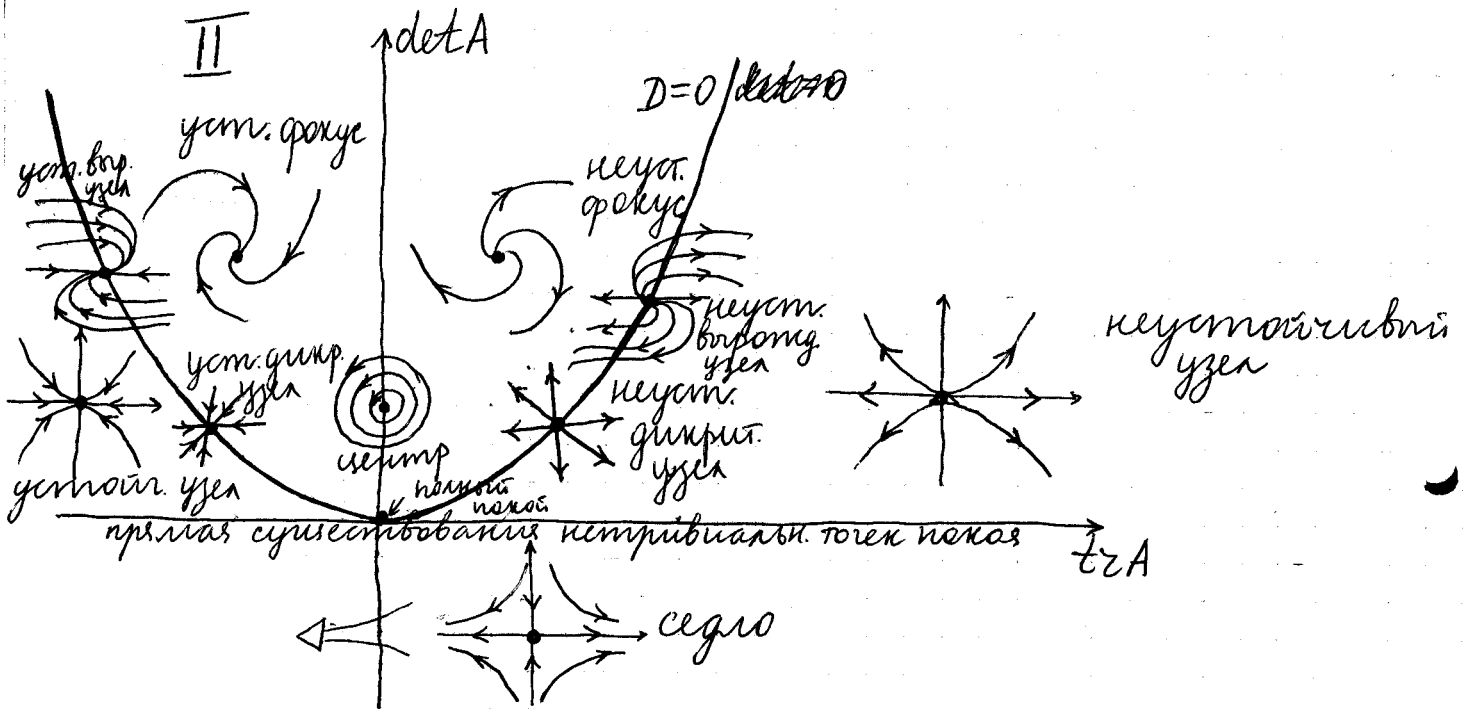 II
det A
D=0
уст. фокус
уст. выр.
узел
неуст.
фокус
неуст.
вырожд
узел
неустойчивый
узел
уст. дикр.
узел
неуст.
дикрит.
узел
центр
устойч. узел
полный
покой
прямая существования нетривиальн. точек покоя
tr A
седло